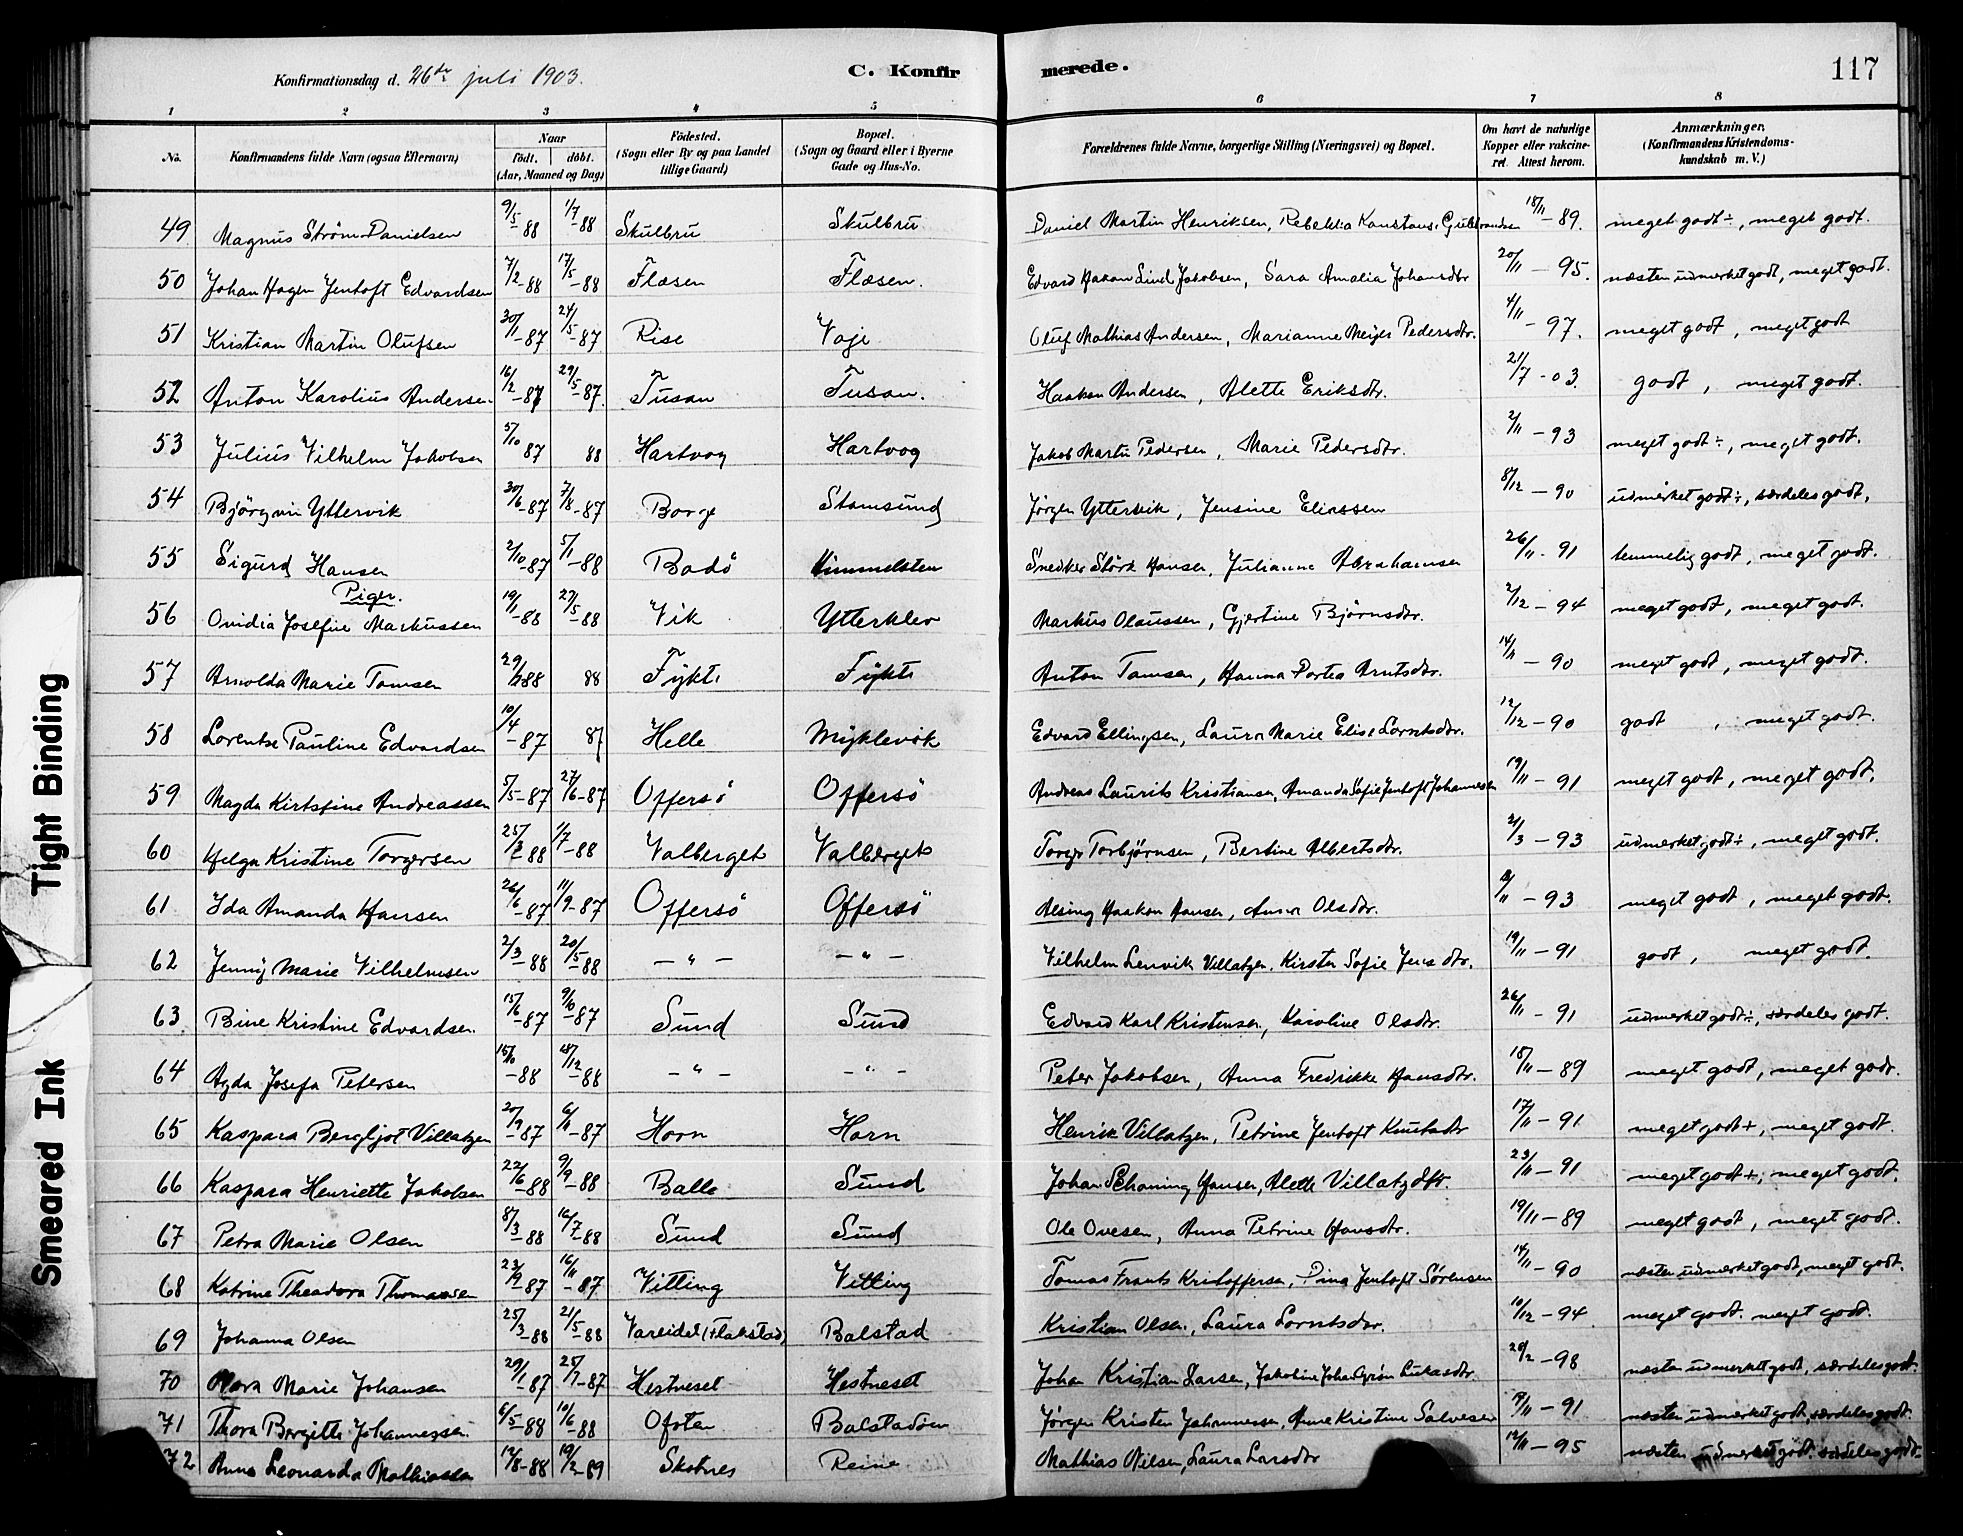 Konfirmationsdag d. 26de juli 1903. C. Konfir merede. 117
1 2 3 4 5 6 7 8
No. Konfirmandens fulde Navn (ogsaa Efternavn) Naar født. døbt. (Aar, Maaned og Dag) Fødested. (Sogn eller By og paa Landet tillige Gaard) Bopæl. (Sogn og Gaard eller i Byerne Gade og Hus-No. Forældrenes fulde Navne, borgerlige Stilling (Næringsvei) og Bopæl. Om havt de naturlige Kopper eller vakcineret. Attest herom. Anmærkninger. (Konfirmandens Kristendomskundskab m. V.)
49 Magnus Strøm Danielsen 9/5-88 1/7-88 Skulbru Skulbru Daniel Martin Henriksen, Rebekka Konstanse Gulbrandsen 18/11-89. meget godt÷, meget godt.
50 Johan Hagen Jentoft Edvardsen 7/2-88 17/5-88 Flæsen Flæsen. Edvard Hakon Lind Jakobsen, Sara Amalia Johansdtr 20/11-95. næsten udmerket godt, meget godt.
51 Kristian Martin Olufsen 30/1-87 24/5-87 Rise Voje Oluf Mathias Andersen, Marianne Meyer Pedersdtr. 4/11-97. meget godt, meget godt
52 Anton Karolius Andersen 16/2-87 29/5-87. Tusan Tusan. Haakon Andersen, Alette Eriksdtr. 21/7-03. godt, meget godt.
53 Julius Vilhelm Jakobsen 5/10 87 88 Hartvog Hartvog Jakob Martin Pedersen, Marie Pedersdtr. 2/11-93 meget godt÷, meget godt.
54 Bjørgvin Yttervik 30/6-87 7/8-87 Borge Stamsund Jørgen Yttervik, Jensine Eliassen 8/12-90 udmerket godt÷, særdeles godt,
55 Sigurd Hansen 2/10-87 5/1-88 Bodø Himmelsten Snedker Størk Hansen, Julianne Abrahamsen 26/11-91 temmelig godt, meget godt.
Piger.
56 Ovidia Josefine Markussen 19/1-88 27/5-88 Vik Ytterklev Markus Olaussen, Gjertine Bjørnsdtr. 2/12-94 meget godt, meget godt.
57 Arnolda Marie Tomsen 29/2 88 88 Fykti Fykti Anton Tomsen, Hanna Dortea Arntsdtr. 14/11-90 meget godt, meget godt.
58 Lorentse Pauline Edvardsen 10/4-87 87 Helle Myklevik Edvard Ellingsen, Laura Marie Elise Lorntsdtr. 12/12-90 godt, meget godt.
59 Magda Kirtstine Andreassen 5/5-87 27/6-87 Offersø Offersø Andreas Laurits Kristiansen, Amanda Sofie Jentoft Johannesen 19/11-91 meget godt, meget godt.
60 Helga Kristine Torgersen 25/2 88 1/7-88 Valberget Valberget Torger Torbjørnsen, Bertine Albertsdtr. 2/3-93 udmerket godt÷, meget godt.
61 Ida Amanda Hansen 26/6-87 11/9-87 Offersø Offersø Alsing Haakon Hansen, Anna Olsdtr. /11-93 meget godt, meget godt.
62 Jenny Marie Vilhelmsen 2/3-88 20/5-88 — " — — " — Vilhelm Lenvik Villatzen. Kirsten Sofie Jensdtr. 19/11-91 godt, meget godt.
63 Bine Kristine Edvardsen. 15/6-87 -87 Sund Sund Edvard Karl Kristensen, Karoline Olsdtr. 26/11-91 udmerket godt÷, særdeles godt.
64 Agda Josefa Petersen 15/10-88 18/12-88 — " — — " — Peter Jakobsen, Anna Fredrikke Hansdtr. 18/11-89 meget godt, meget godt.
65 Kaspara Bergljot Villatzen 20/9-87 6/11-87 Horn Horn Henrik Villatzen, Petrine Jentoft Knutsdtr 17/11-91 meget godt+, meget godt.
66 Kaspara Henriette Jakobsen 22/6-88 9/9-88 Balle Sund Johan Schøning Hansen, Aleth Villatzdtr. 23/11-91 meget godt+, meget godt.
67 Petra Marie Olsen 8/3-88 16/7-88 Sund Sund Ole Ovesen, Anna Petrine Hansdtr. 19/11-89 meget godt, meget godt.
68 Katrine Theadora Thomassen 23/9-87 16/11-87 Vitting Vitting Tomas Frants Kristoffersen, Dina Jentoft Sørensen 14/11-90 næsten udmerket godt, meget godt.
69 Johanna Olsen 25/3-88 21/5-88 Vareidet (Flakstad) Balstad Kristian Olsen, Laura Lorntsdtr. 10/12-94 meget godt. meget godt.
70 Mara Marie Johansen 29/1-87 25/7-87 Hestneset Hestneset Johan Kristian Larsen, Jakobine Johan Grøn Lukasdtr. 28/2-98 næsten udmerket godt, særdeles godt.
71 Thora Bergitte Johannessen 6/5-88 10/6-88 Ofoten Balstadøen Jørgen Kristen Johannessen, Anne Kristine Salvesen 17/11-91 næsten udmerket godt, særdeles godt.
72 Anna Leonarda Mathiassen 12/8-88 19/2-89 Skotnes Reine Mathias Nilsen, Laura Larsdtr 12/11-95 næsten udmerket godt. særdeles godt.
Tight Binding
Smeared Ink